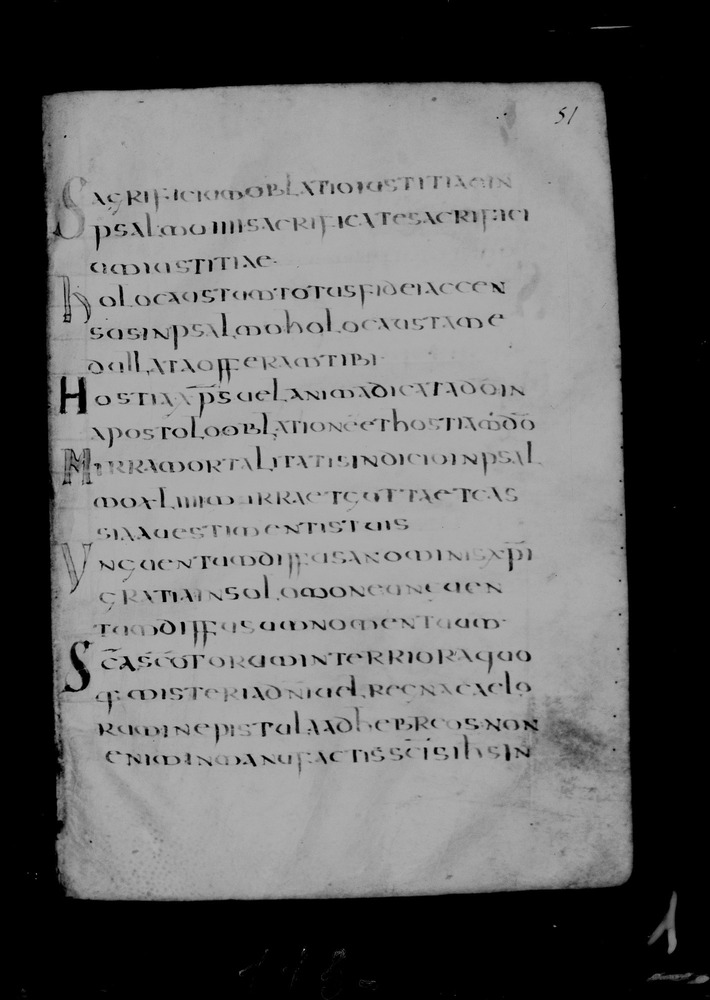 51
SACRIFICIUM OBLATIO IUSTITIAE IN
PSALMO IIII SACRIFICATE SACRIFICI
UM IUSTITIAE·
hOLOCAUSTUM TOTUS FIDEI ACCEN
SUS IN PSALMO hOLOCAUSTA ME
DULLATA OFFERAM TIBI·
HOSTIA XP̅S UEL ANIMA DICATA D̅O IN
APOSTOLO OBLATIONE̅ ET hOSTIAM D̅O
MIRRA MORTALITATIS INDICIO IN PSAL
MO XLIIII MIRRA ET GUTTA ET CAS
SIA A UESTIMENTIS TUIS
VNGUENTUM DIFFUSA NOMINIS XP̅I
GRATIA IN SOLOMONE UNGUEN
TUM DIFFUSUM NOMEN TUUM·
SC̅A SC̅OTORUM INTERRIORA QUO
Q· MISTERIA D̅NI UEL REGNA CAELO
RUM IN EPISTULA AD hEBREOS· NON
ENIM IN MANUFACTIS SC̅IS IH̅S IN
1